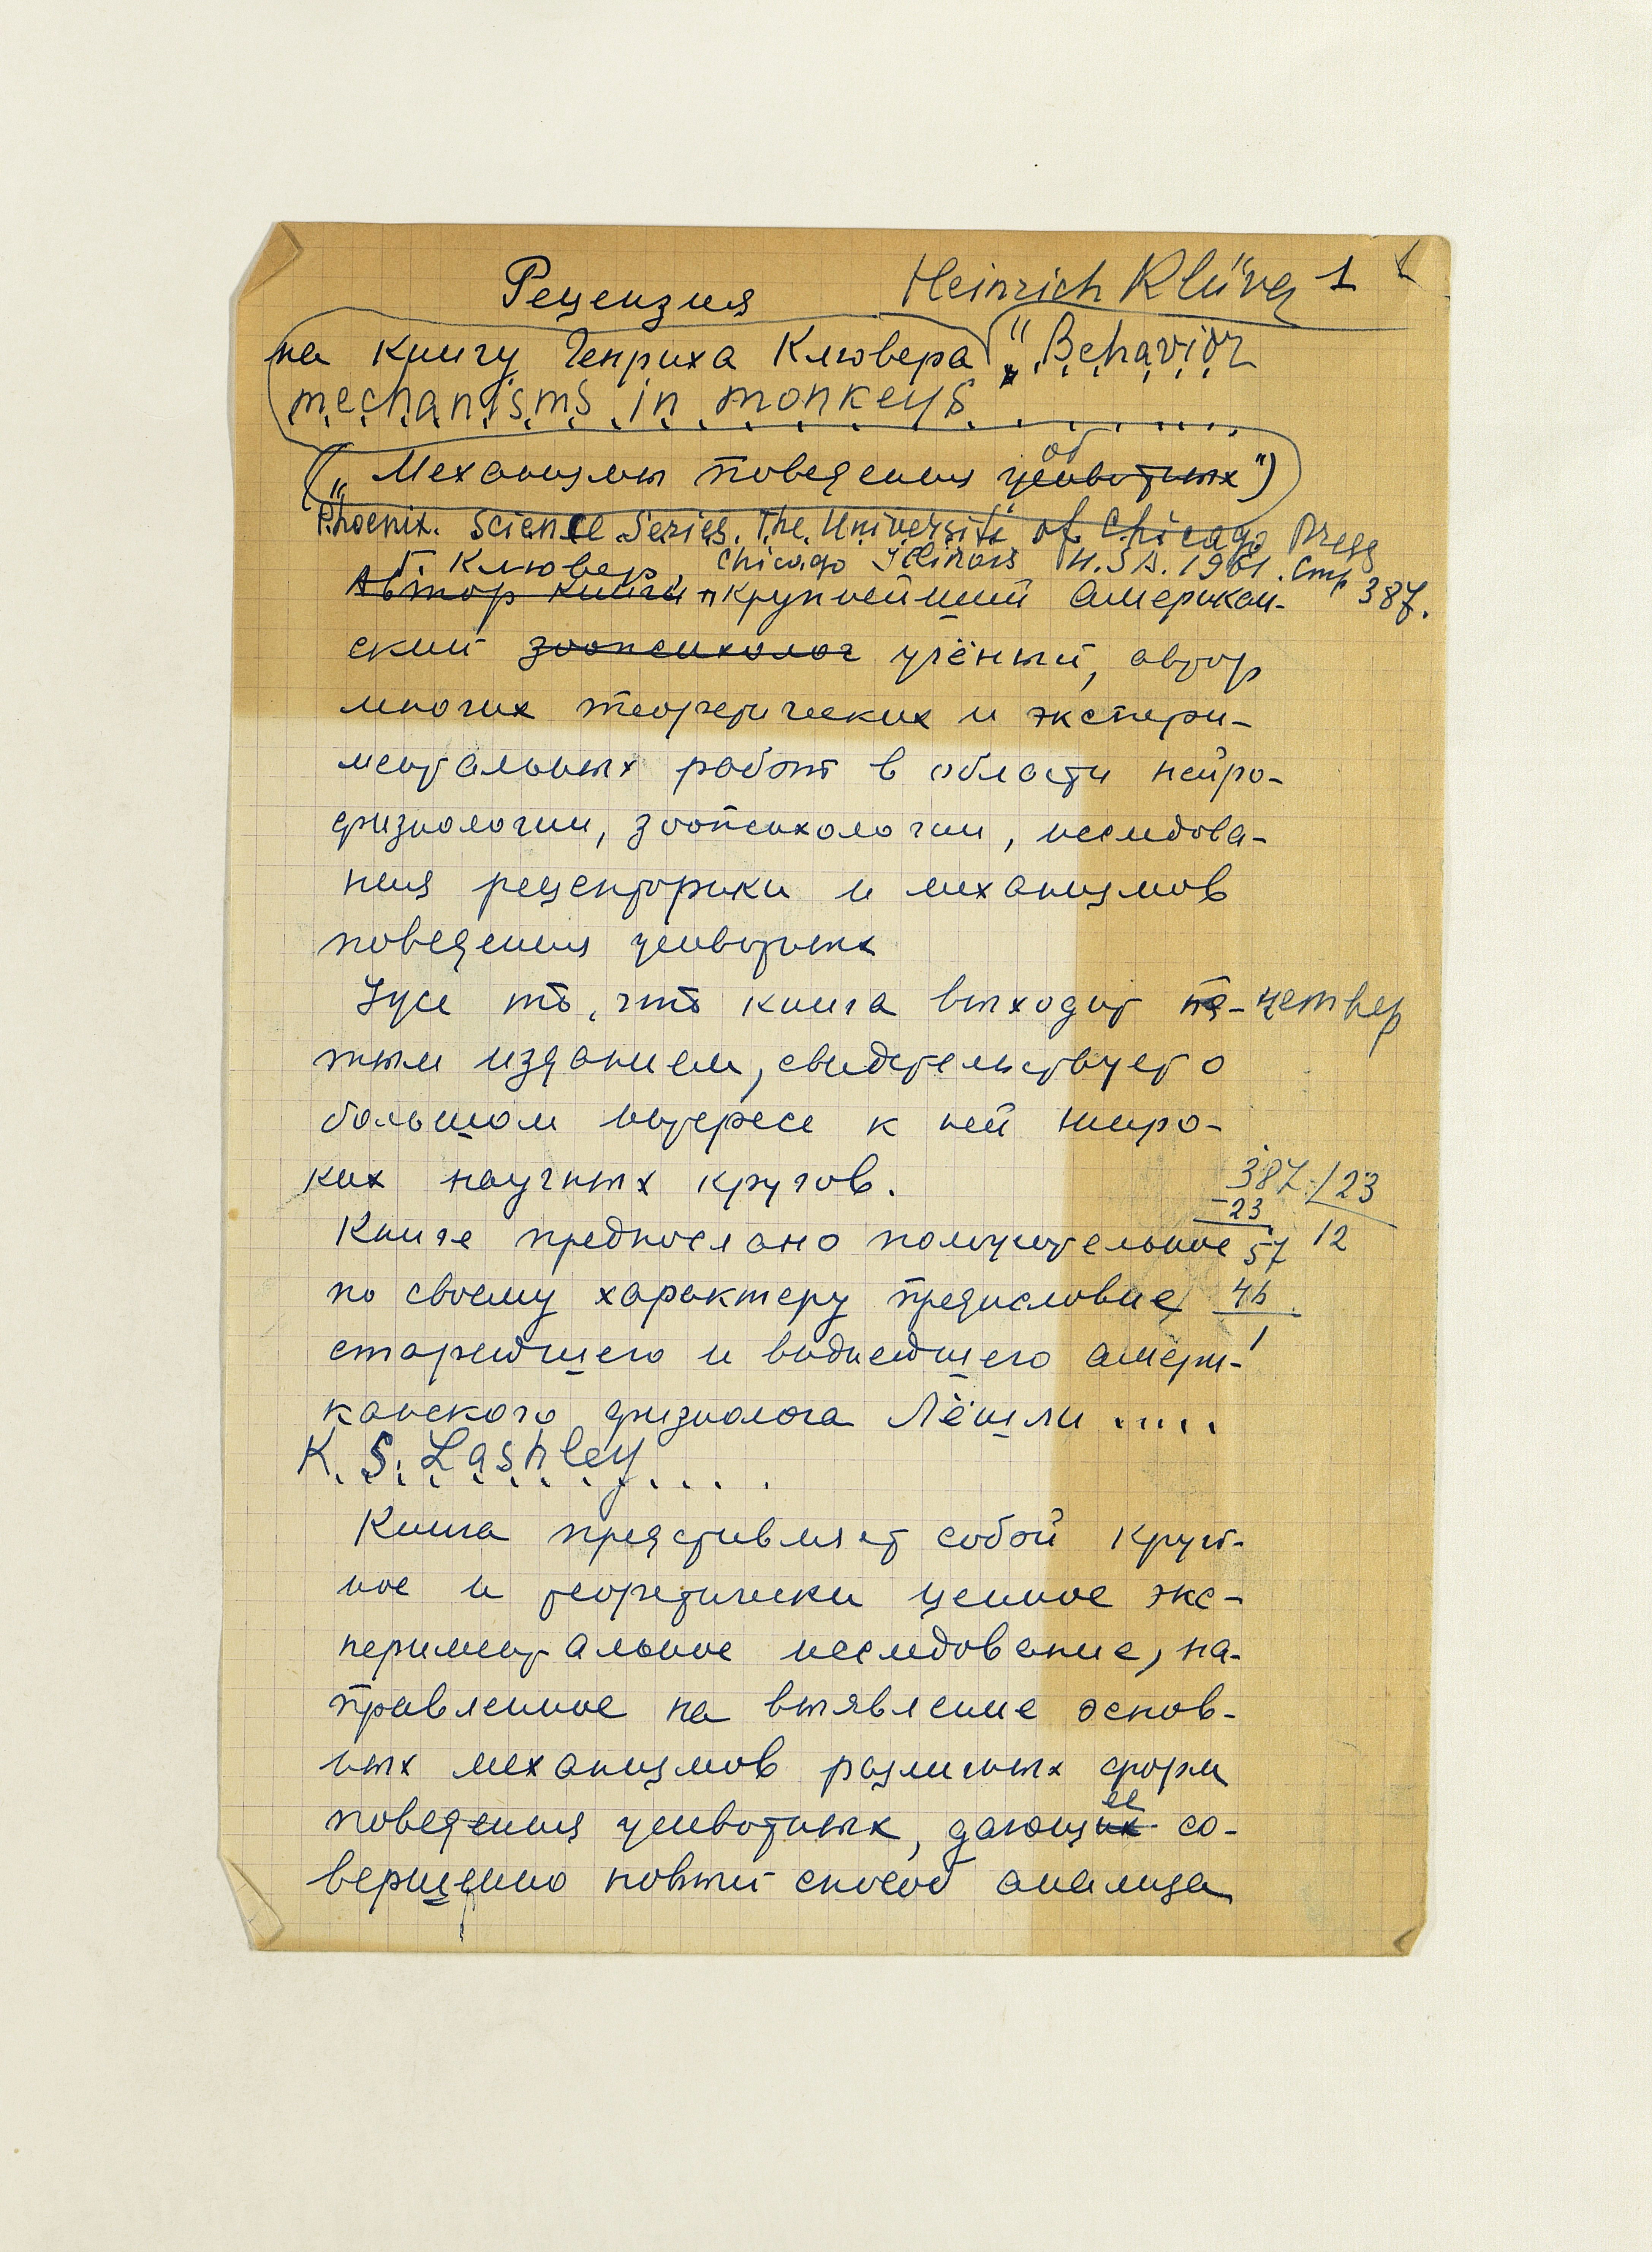 Рецензия Heinrich Klüver 1
на книгу Генриха Клювера „Behavior
mechanisms in monkeys
(„Механизмы поведения об животных")
Phoenix. Science Series. The Universiti of Chicago Press
Г. Клювер, Chicago Illinois U.S.A. 1961. Стр 387.
Автор книги крупнейший американ-
ский зоопсихолог учёный, автор
многих теоретических и экспери-
ментальных работ в области нейро-
физиологии, зоопсихологии, исследова-
ния рецепторики и механизмов
поведения животных
Уже то, что книга выходит четвер
тым изданием, свидетельствует о
большом интересе к ней широ-
ких научных кругов.
387 / 23
- 23
Книге предпослано положительное 57 12
по своему характеру предисловие 46
старейшего и виднейшего амери- 1
канского физиолога Лёшли .....
K. S. Lashley
Книга представляет собой круп-
ное и теоретически ценное экс-
периментальное исследование, на-
правленное на выявление основ-
ных механизмов различных форм
ее
поведения животных, дающих со-
вершенно новый способ анализа